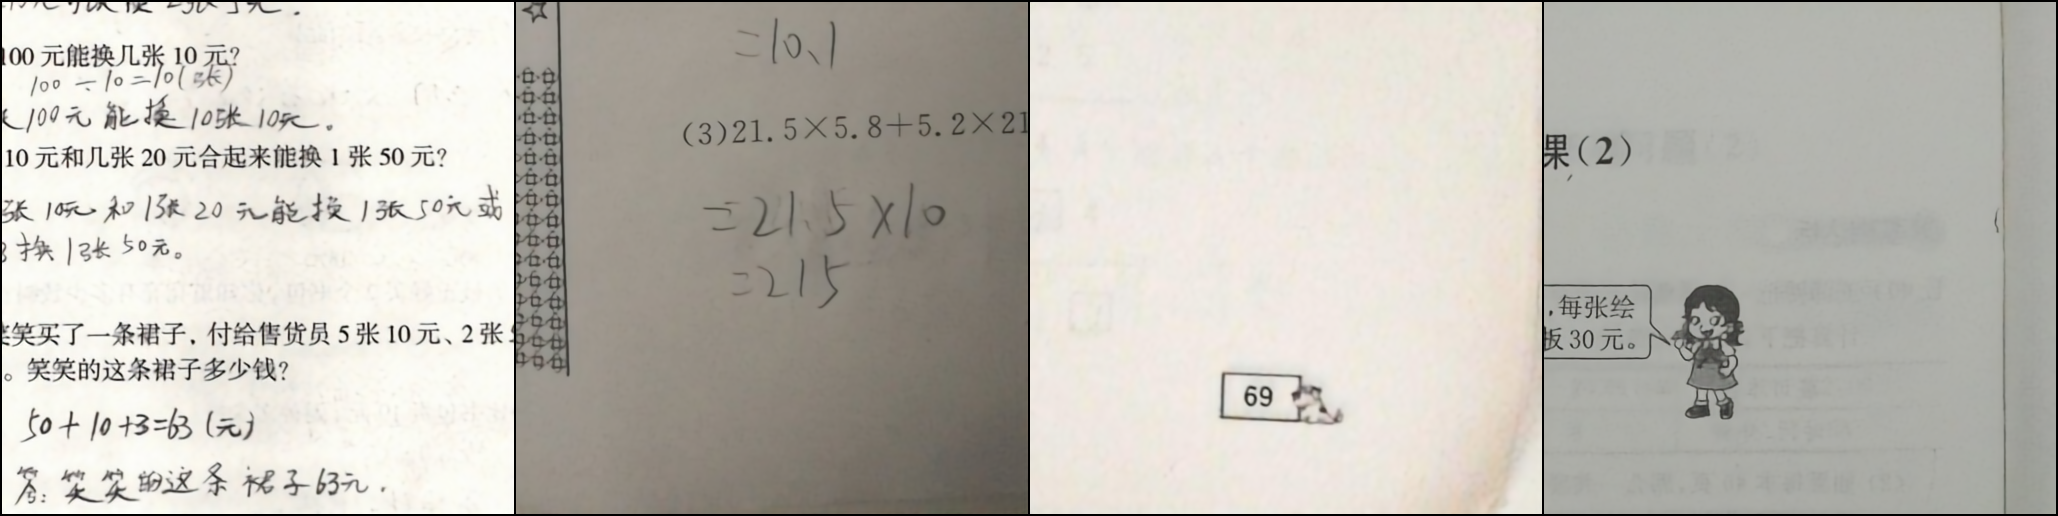 100 元能换几张 10 元?
100÷10=10(张)
100元能换10张10元。
10 元和几张 20 元合起来能换 1 张 50 元?
张10元和1张20元能换1张50元或
换1张50元。
笑笑买了一条裙子，付给售货员 5 张 10 元、2 张
。笑笑的这条裙子多少钱?
50+10+3=63(元)
答:笑笑的这条裙子63元.
=10、1
(3)21.5×5.8+5.2×21
=21.5×10
=215
69
果(2)
,每张绘
板 30 元。